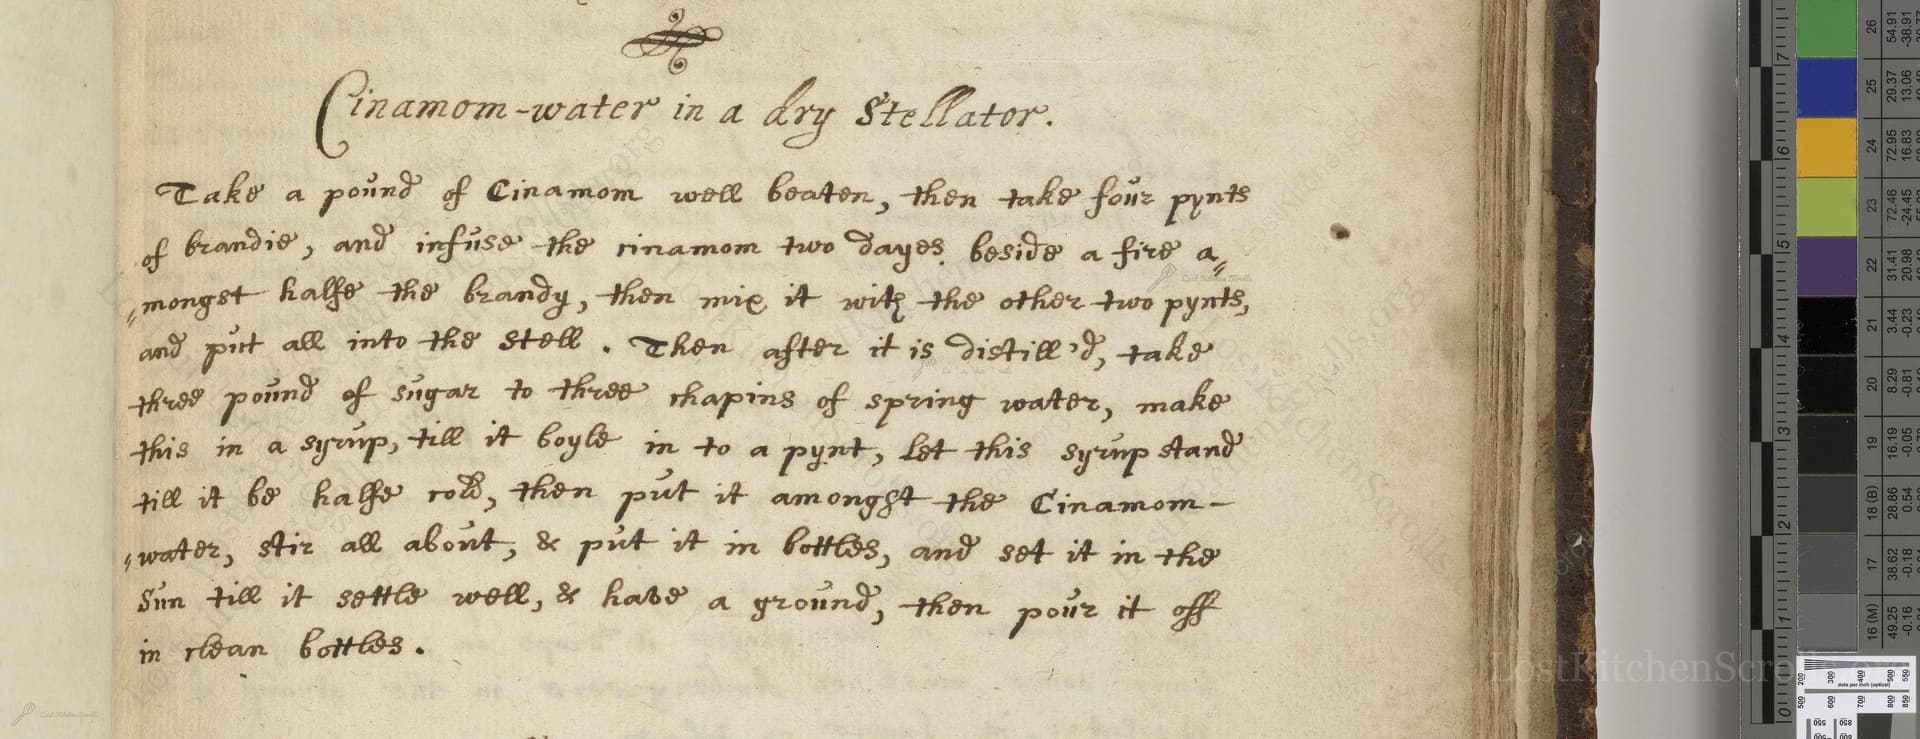 Cinamom-water in a dry Stellator.
Take a pound of Cinamom well beaten, then take four pynts
of brandie, and infuse the cinamom two dayes beside a fire a„
„mongst halfe the brandy, then mix it with the other two pynts,
and put all into the Stell. Then after it is distill'd, take
three pound of sugar to three chapins of spring water, make
this in a syrup, till it boyle in to a pynt, let this syrup stand
till it be halfe cold, then put it amongst the Cinamom-
„water, stir all about, & put it in bottles, and set it in the
Sun till it settle well, & have a ground, then pour it off
in clean bottles.
LostKitchenScrolls.org
7
6
5
4
3
2
1
0
26
25
24
23
22
21
20
19
18 (B)
17
16 (M)
54.91
-38.91
29.37
13.06
72.95
16.83
72.46
-24.45
31.41
20.98
3.44
-0.23
8.29
-0.81
16.19
-0.05
28.86
0.54
38.62
-0.18
49.25
-0.16